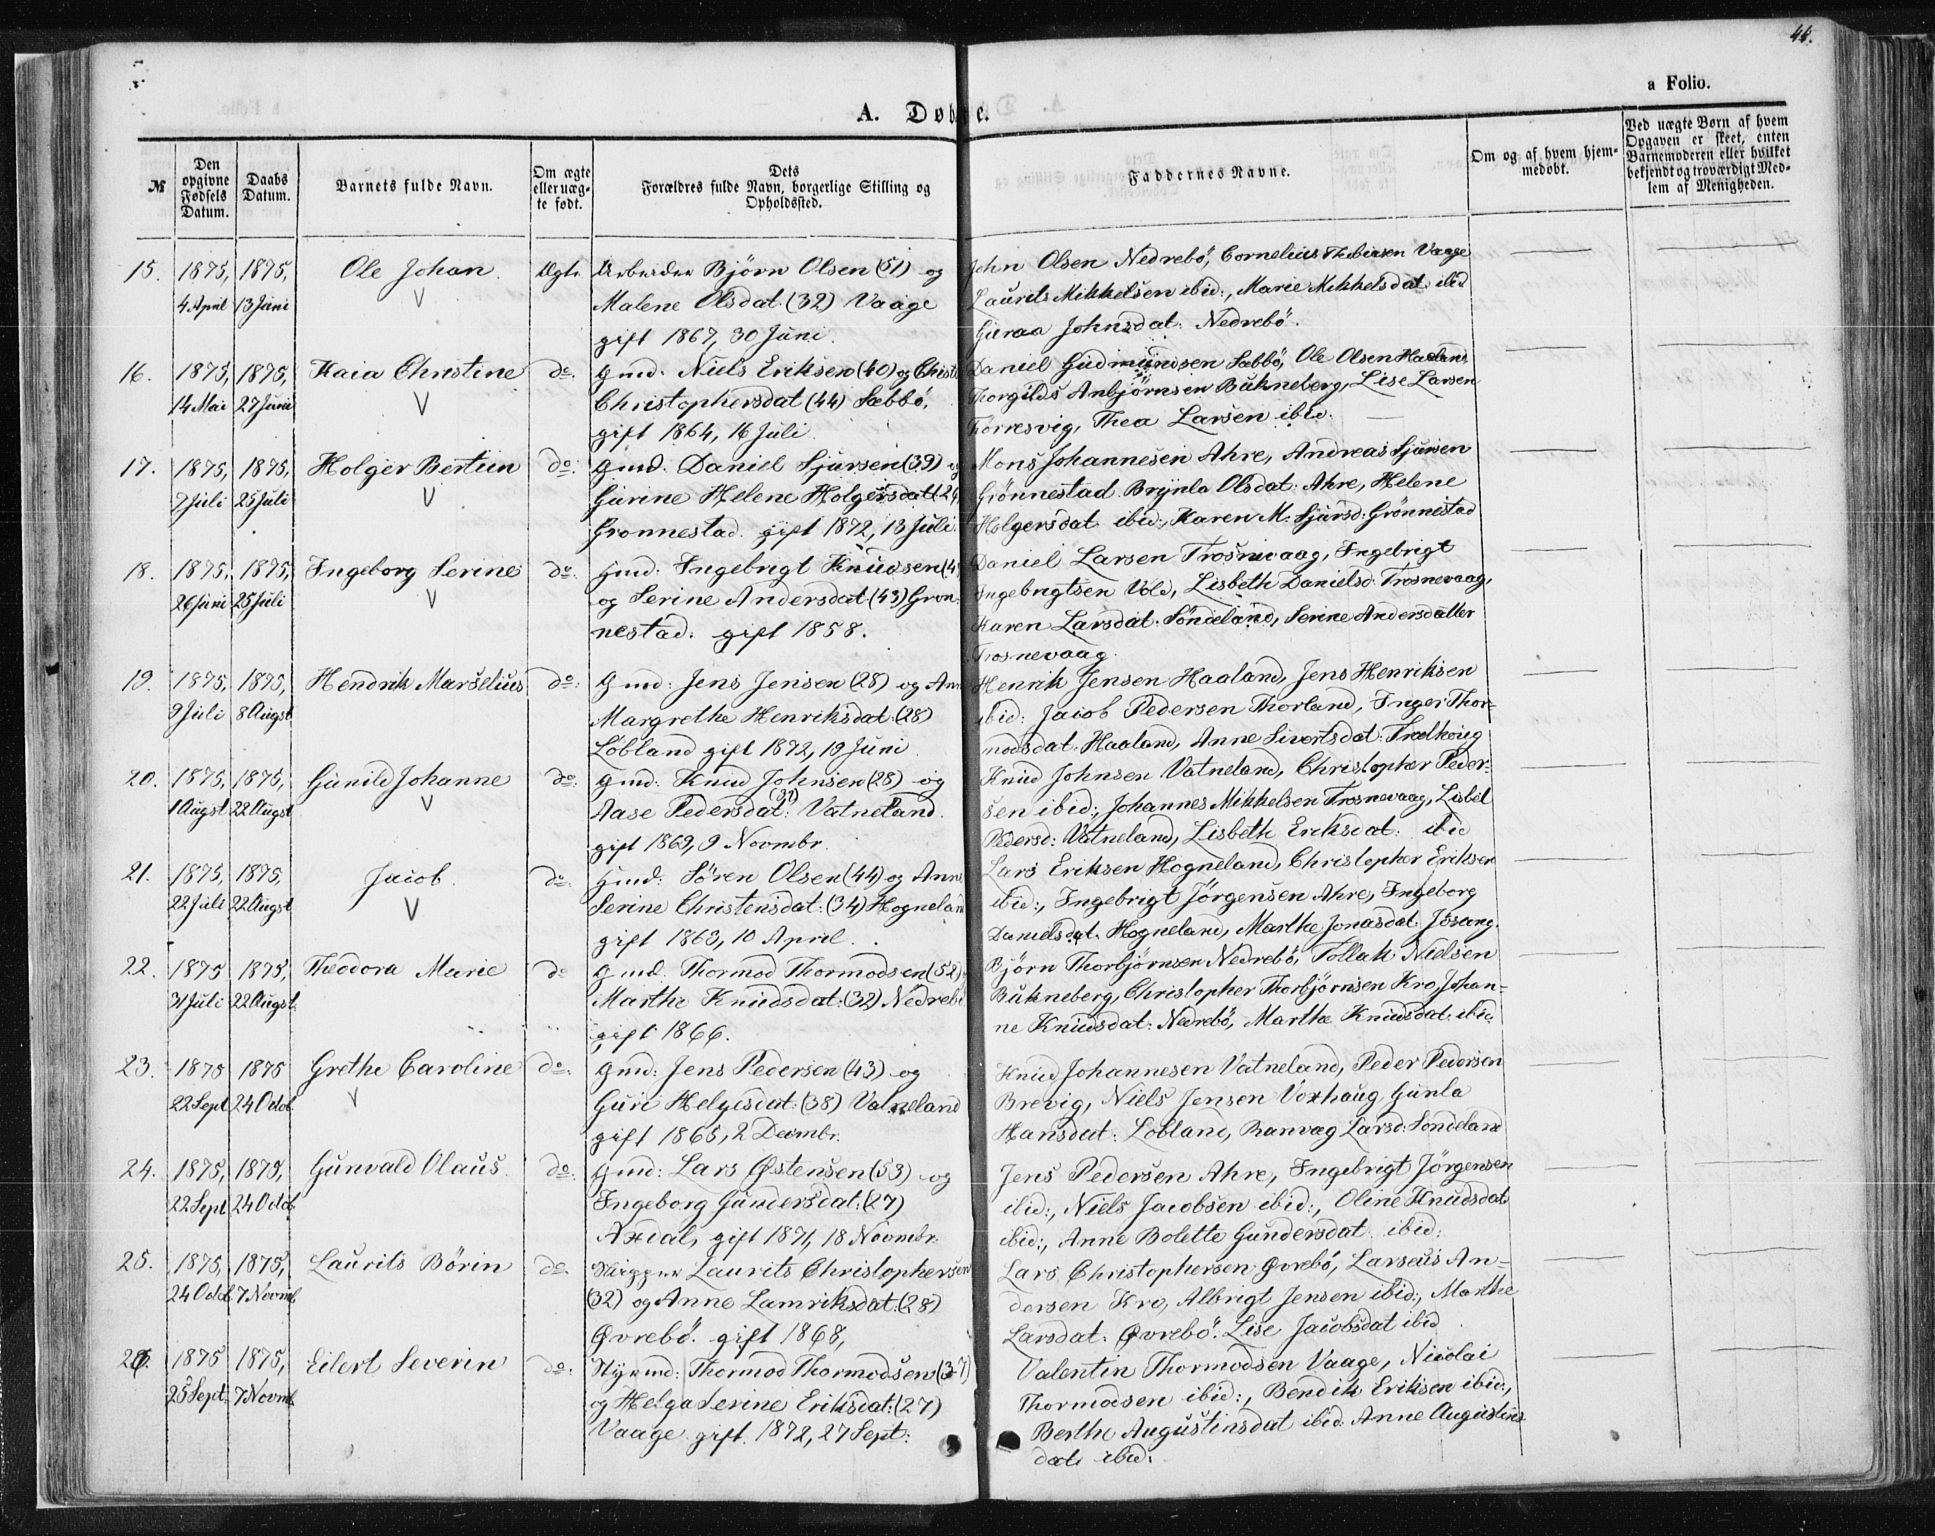 44.
a Folio.
A. Døbte.
№
Den opgivne Fødsels Datum.
Daabs Datum.
Barnets fulde Navn.
Om ægte eller uægte født.
Dets Forældres fulde Navn, borgerlige Stilling og Opholdssted.
Faddernes Navne.
Om og af hvem hjemmedøbt.
Ved uægte Børn af hvem Opgaven er skeet, enten Barnemoderen eller hvilket bekjendt og troværdigt Medlem af Menigheden.
15. 1875, 1875, Ole Johan Ægte Arbeider Björn Olsen (51) og John Olsen Nedrebö, Cornelius Vaage
4 April 13 Juni V Malene Olsdat. (32) Vaage Laurits Mikkelsen ibid:, Marie Mikkelsdat. ibid
gift 1867, 30 Juni. Guraa Johnsdat: Nedrebö.
16. 1875, 1875, Kaia Christine do. Gmd. Niels Eriksen (40) og Christi Daniel Gudmundsen Sæbbö, Ole Olsen Haaland
14 Mai 27 Juni V Christophersdat (44) Sæbbö, Thorgilds Anbjörnsen Bukneberg, Lise Larsen
gift 1864, 16 Juli Torresvig, Thea Larsen ibid.
17. 1875, 1875, Holger Bertin do. Gmd. Daniel Sjursen (39) og Mons Johannesen Ahre, Andreas Sjursen
7 Juli 25 Juli V Gurine Helene Holgersdat (24 Grönnestad. Brynla Olsdat: Ahre, Helene
Grönnestad. gift 1872, 13 Juli. Holgersdat ibid:, Karen M. Sjursd: Grönnestad
18. 1875, 1875, Ingeborg Serine do. Gmd: Ingebrigt Knudsen (4 Daniel Larsen Trosnevaag, Ingebrigt
26 Juni 25 Juli V og Serine Andersdat (43) Grön- Ingebrigtsen Vold, Lisbeth Danielsd. Trosnevaag,
nestad. gift 1858. Karen Larsdat. Söndeland, Serine Andersdatter
Trosnevaag.
19. 1875, 1875, Hendrik Marselius do: Gmd: Jens Jensen (28) og Ann Henrik Jensen Haaland, Jens Henriksen
9 Juli 8 Augst Margrethe Henriksdat (28) ibid: Jacob Pedersen Thorland, Inger Thor-
Lobland gift 1872, 19 Juni modsdat. Haaland, Anne Sivertsdat:
20. 1875, 1875, Gunild Johanne do: Gmd: Knud Johnsen (28) og Knud Johnsen Vatneland, Christopher Peder-
1 Augst 22 Augst V Aase Pedersdat: (31) Vatneland. sen ibid:, Johannes Mikkelsen Trosnevaag, Lisbet
gift 1869, 9 Novmbr. Pedersd: Vatneland, Lisbeth Eriksdat: ibid
21. 1875, 1875, Jacob. do. Gmd: Sören Olsen (44) og Anne Lars Eriksen Hogneland, Christopher Eriksen
22 Juli 22 Augst V Serine Christensdat: (34) Hogneland ibid:, Ingebrigt Jörgensen Ahre, Ingeborg
gift 1863, 10 April. Danielsdat. Hogneland, Marthe Jonasdat. Jösang.
22. 1875 1875, Theodora Marie do Gmd. Thormod Thormodsen (52) Björn Thorbjörnsen Nedrebö, Tollak Nielsen
31 Juli 22 Augst. Marthe Knudsdat: (32) Nedrebö Bukneberg, Christopher Thorbjörnsen Kro, Johan-
gift 1866. ne Knudsdat: Nedrebö, Marthe Knudsdat. ibid.
23. 1875 1875 Grethe Caroline do: Gmd: Jens Pedersen (43) og Knud Johannesen Vatneland, Peder Pedersen
22 Sept 24 Octob. V Guri Helgesdat: (38) Vatneland Brevig, Niels Jensen Voxhaug Gunla
gift 1865, 2 Decmbr. Hansdat: Lobland, Ranvæg Larsd: Söndeland
24. 1875, 1875, Gunvald Olaus. do: Gmd: Lars Østensen (53) og Jens Pedersen Ahre, Ingebrigt Jörgensen
22 Sept 24 Octob. Ingeborg Gundersdat: (27) ibid:, Niels Jacobsen ibid:, Oline Knudsdat
Axdal, gift 1871, 18 Novmbr. ibid:, Anne Bolette Gundersdat. ibid:
25. 1875, 1875, Laurits Börin do. Skipper Laurits Christophersen Lars Christophersen Øvrebö, Larseus An-
24 Octob. 7 Novmb. (32) og Anne Lamriksdat: (28) dersen Kro, Albrigt Jensen ibid:, Marthe
Øvrebö. gift 1868, Larsdat. Øvrebö. Lise Jacobsdat ibid
26. 1875 1875, Eilert Severin do: Styrmd: Thormod Thormodsen (37) Valentin Thormodsen Vaage, Nicolai
25 Sept. 7 Novmb. og Helga Serine Eriksdat: (27) Thormodsen ibid:, Bendik Eriksen ibid:,
Vaage. gift. 1872, 27 Sept: Berthe Augustinsdat ibid Anne Augustins
dat: ibid: